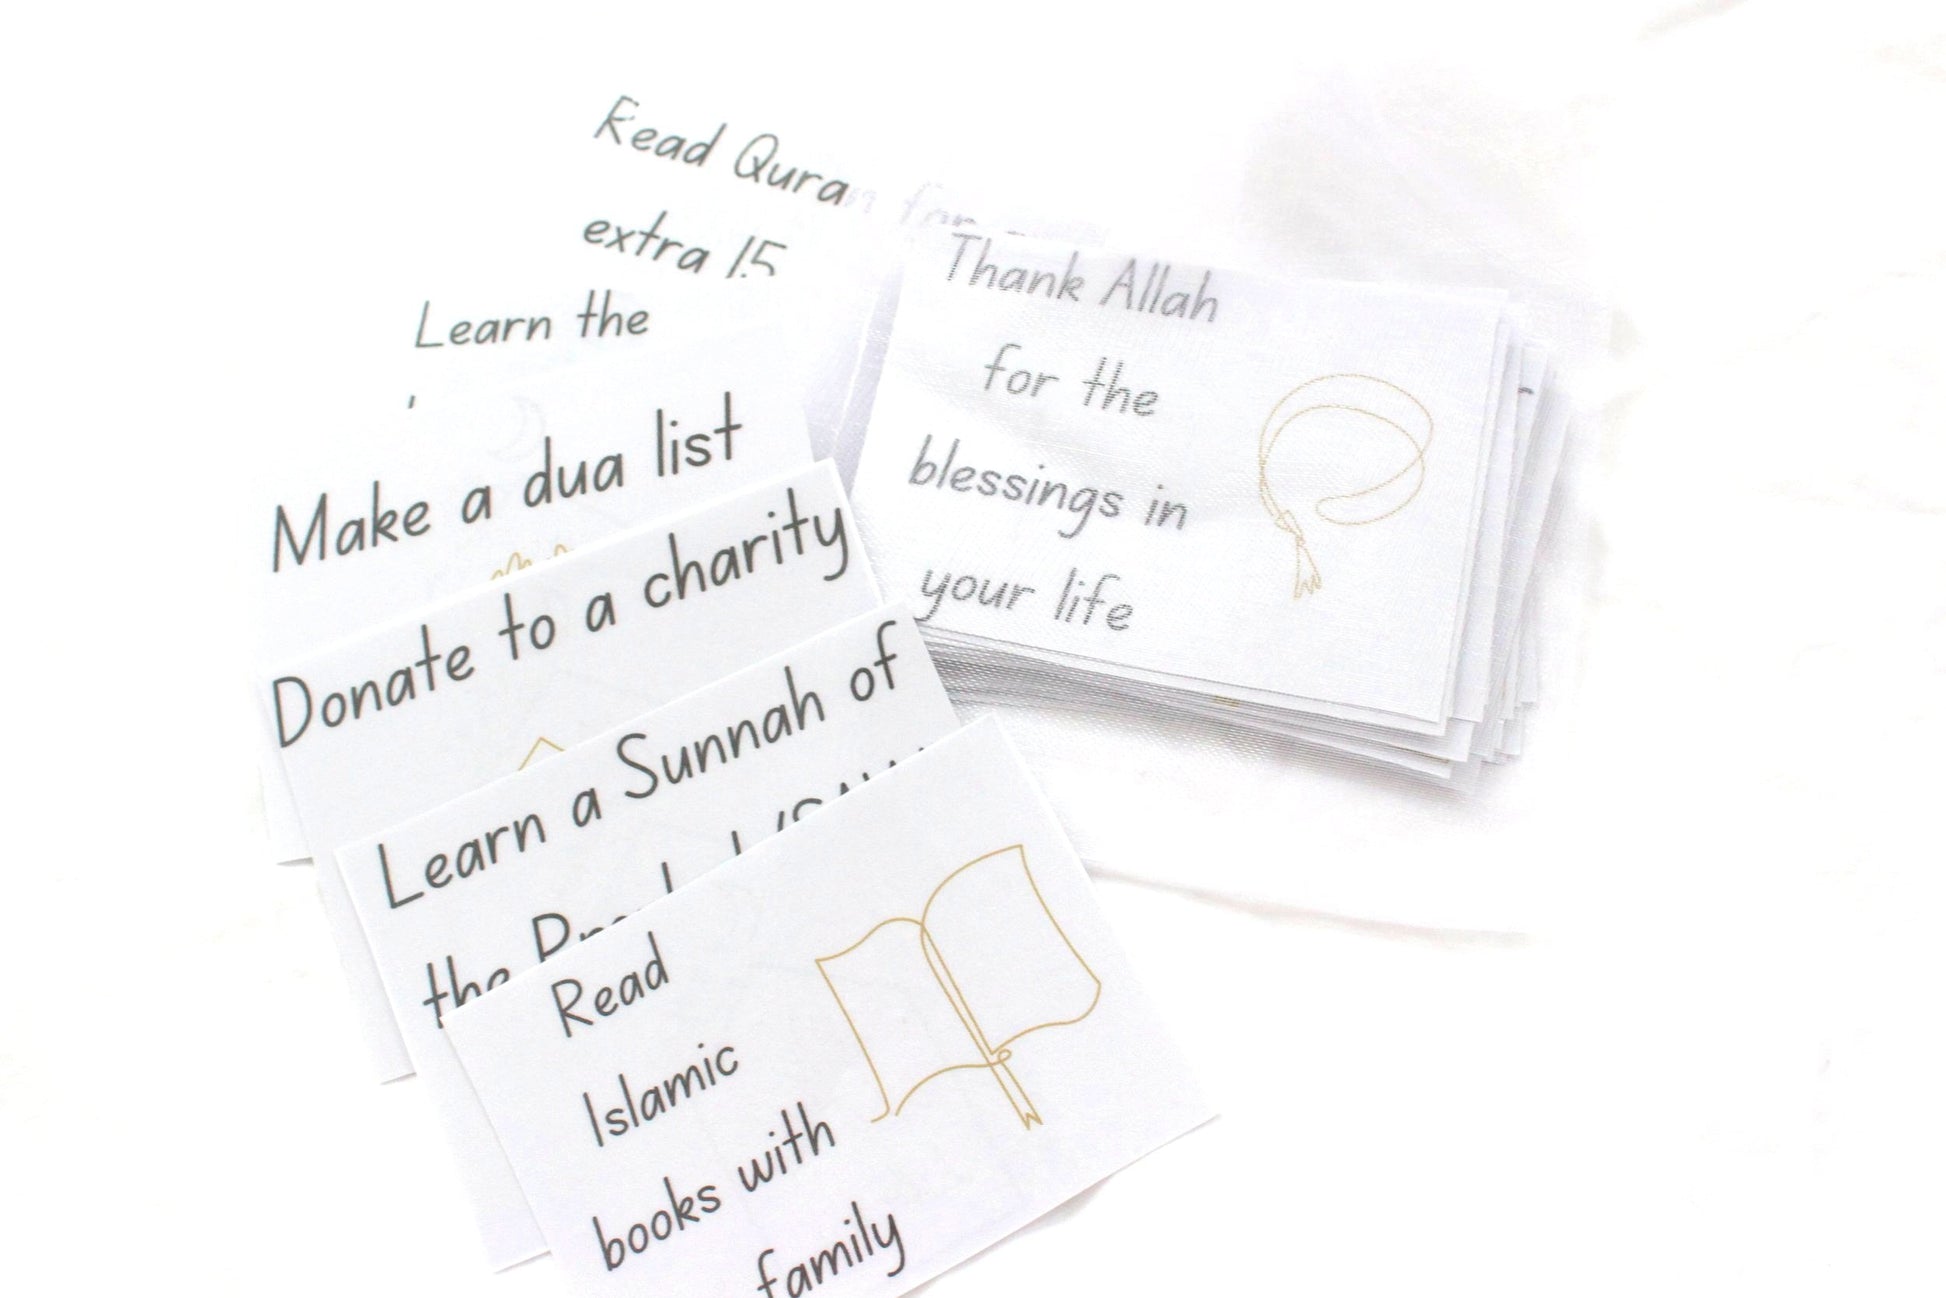 Read Quran for
extra 15
Learn the
Make a dua list
Donate to a charity
Learn a Sunnah of
the
Read
Islamic
books with
family
Thank Allah
for the
blessings in
your life